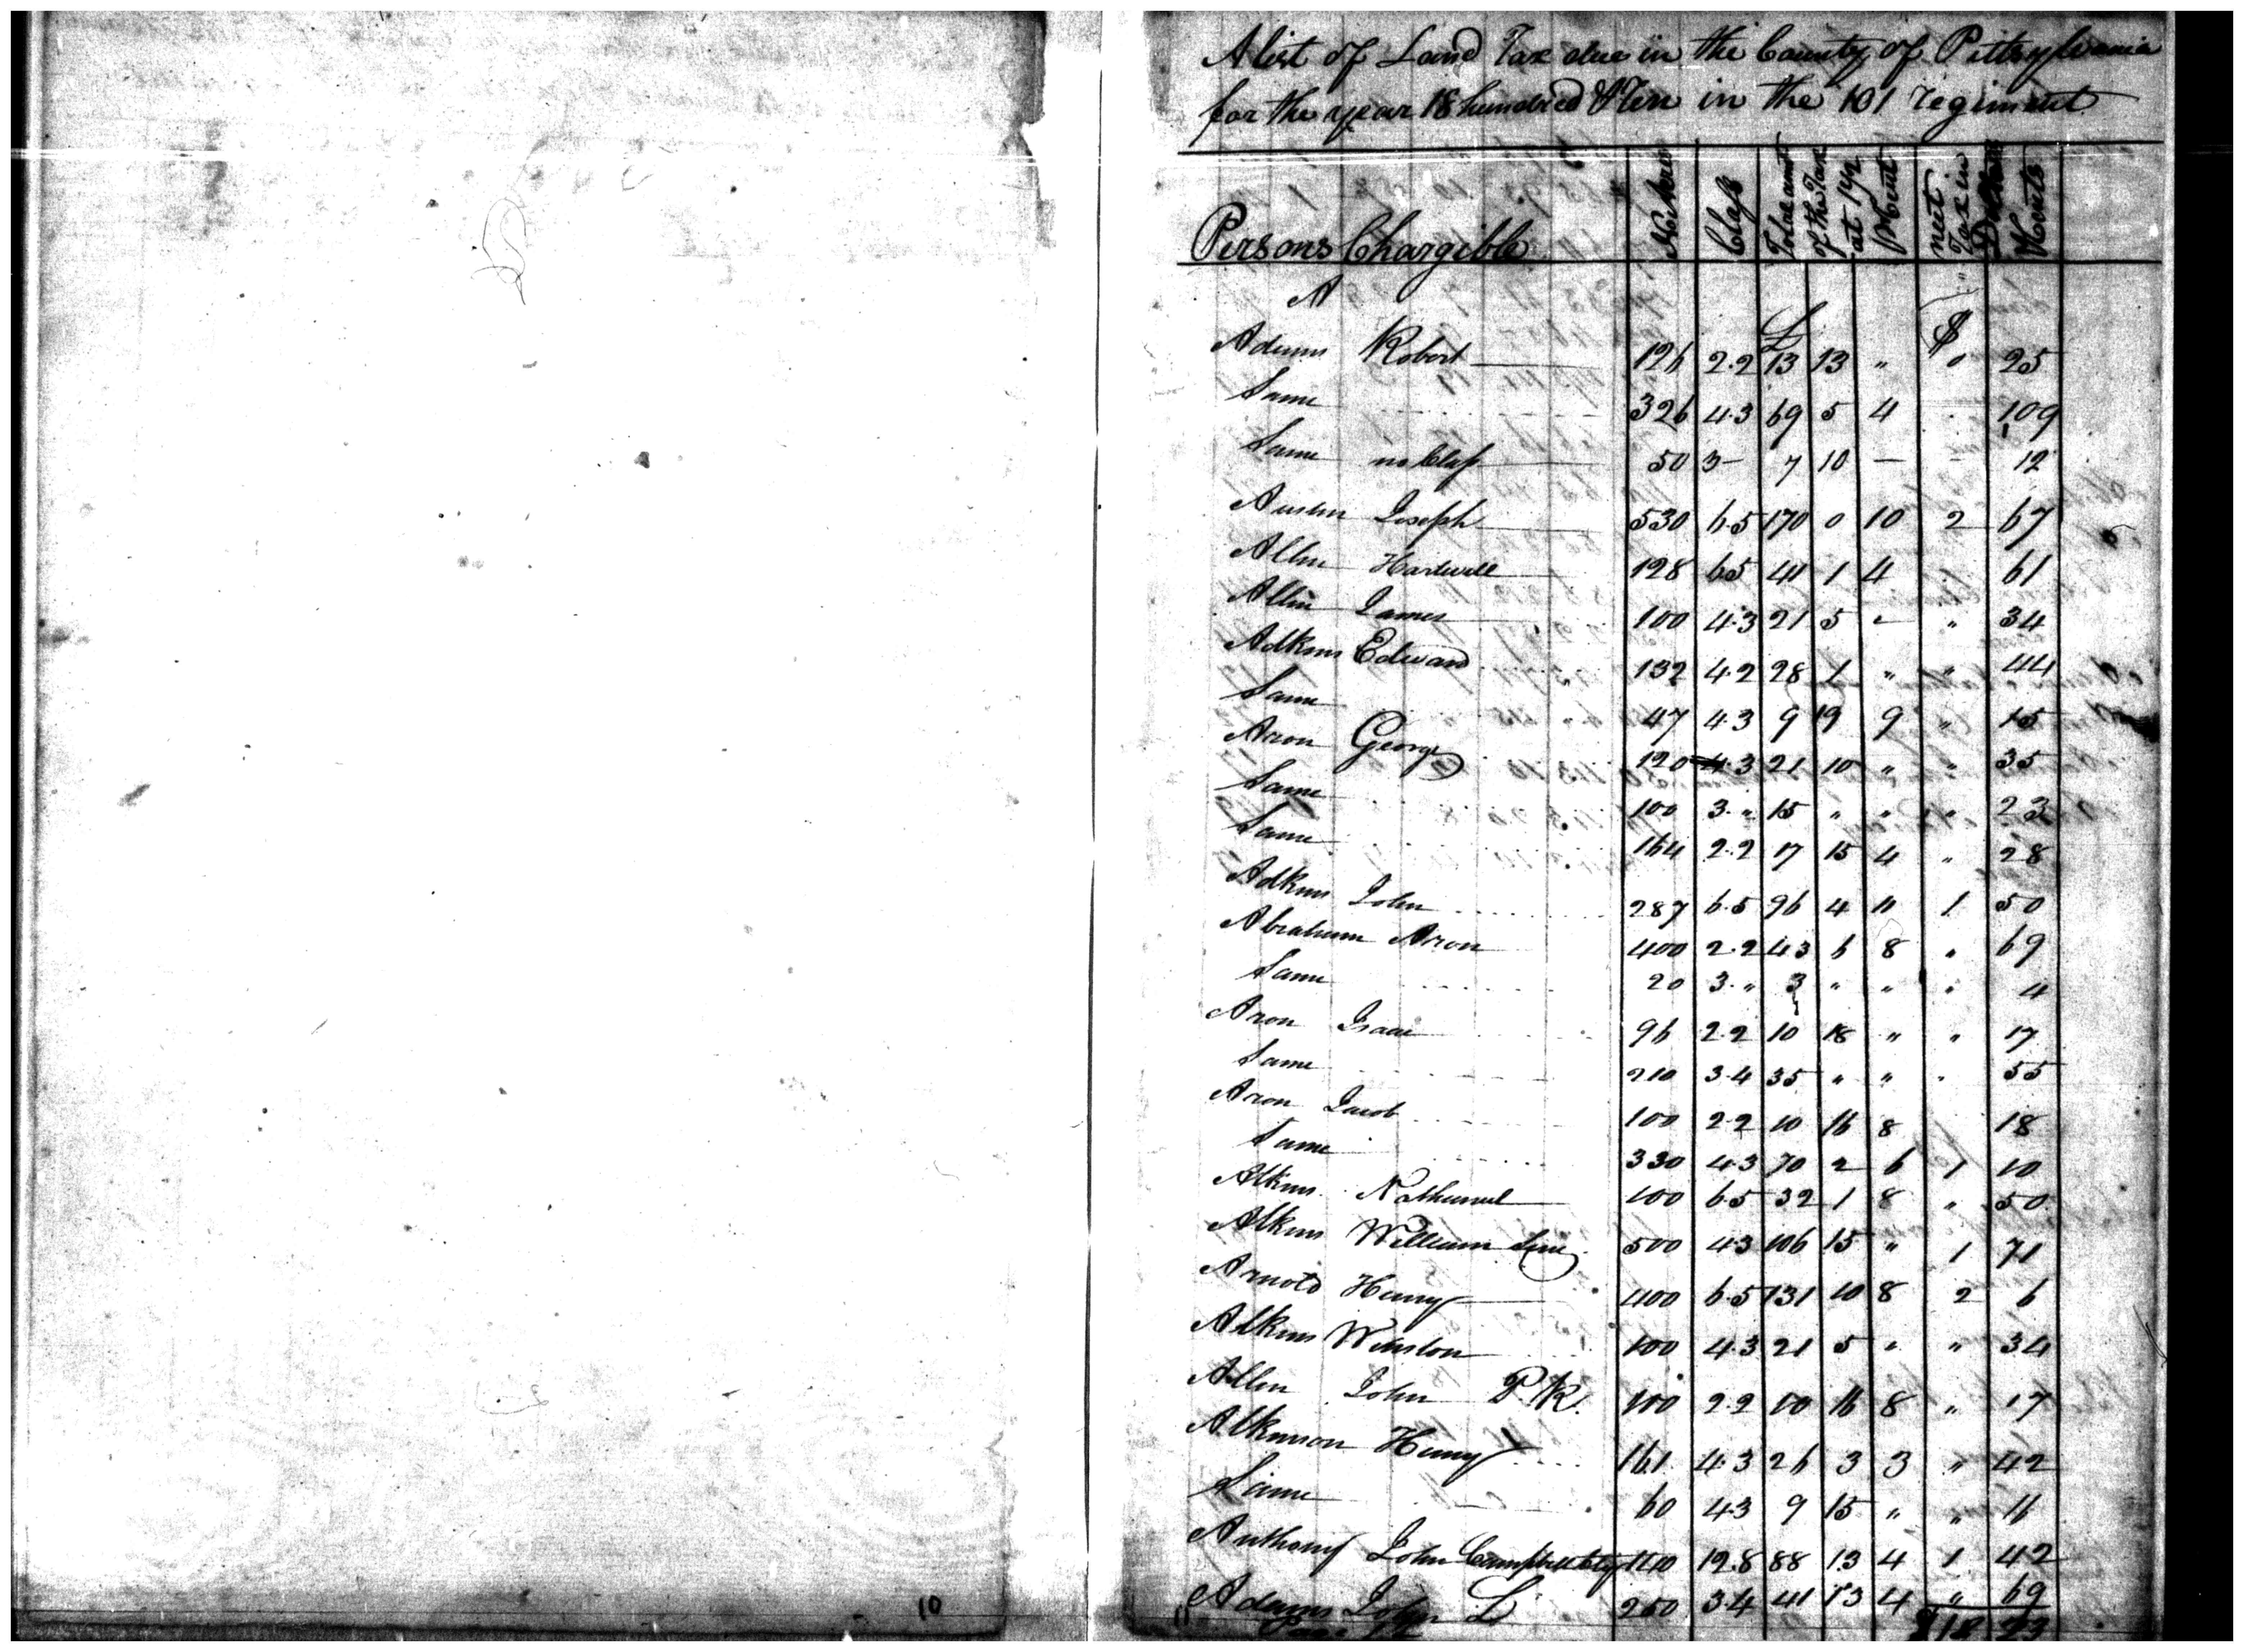 A list of Land Tax due in the County of Pittsylvania
for the year 18 hundred & Ten in the 101 regiment
Persons Chargible No Acres Class Total amt of the Tax at 1 1/2 neet Tax in Dollars & Cents
A
£ $
Adams Robert 126 2.2 13 13 " 0 25
Same 326 4.3 69 5 4 109
Same no Class 50 3 — 7 10 — — 12
Austin Joseph 530 6.5 170 0 10 2 67
Allen Hartwell 128 6.5 41 1 4 61
Allin James 100 4.3 21 5 " " 34
Adkins Edward 132 4.2 28 1 " " 44
Same 47 4.3 9 19 9 " 15
Aron George 120 4.3 21 10 " " 35
Same 100 3 " 15 " " " 23
Same 164 2.2 17 15 4 " 28
Adkins John 287 6.5 96 4 11 1 50
Abraham Aron 400 2.2 43 6 8 " 69
Same 20 3 " 3 " " " 4
Aron Isaac 96 2.2 10 18 " " 17
Same 210 3.4 35 " " " 55
Aron Jacob 100 2.2 10 16 8 18
Same 330 4.3 70 2 6 1 10
Atkins Nathaniel 100 6.5 32 1 8 " 50
Atkins William Senr 500 4.3 106 15 " 1 71
Arnold Henry 400 6.5 131 10 8 2 6
Atkins Winston 100 4.3 21 5 " " 34
Allen John P.R. 100 2.2 10 16 8 " 17
Atkinson Henry 161 4.3 26 3 3 " 42
Same 60 4.3 9 15 " " 16
Anthony John Campbell Cty 140 12.8 88 13 4 1 42
Adams John L 250 3.4 41 13 4 " 69
$18
10
11